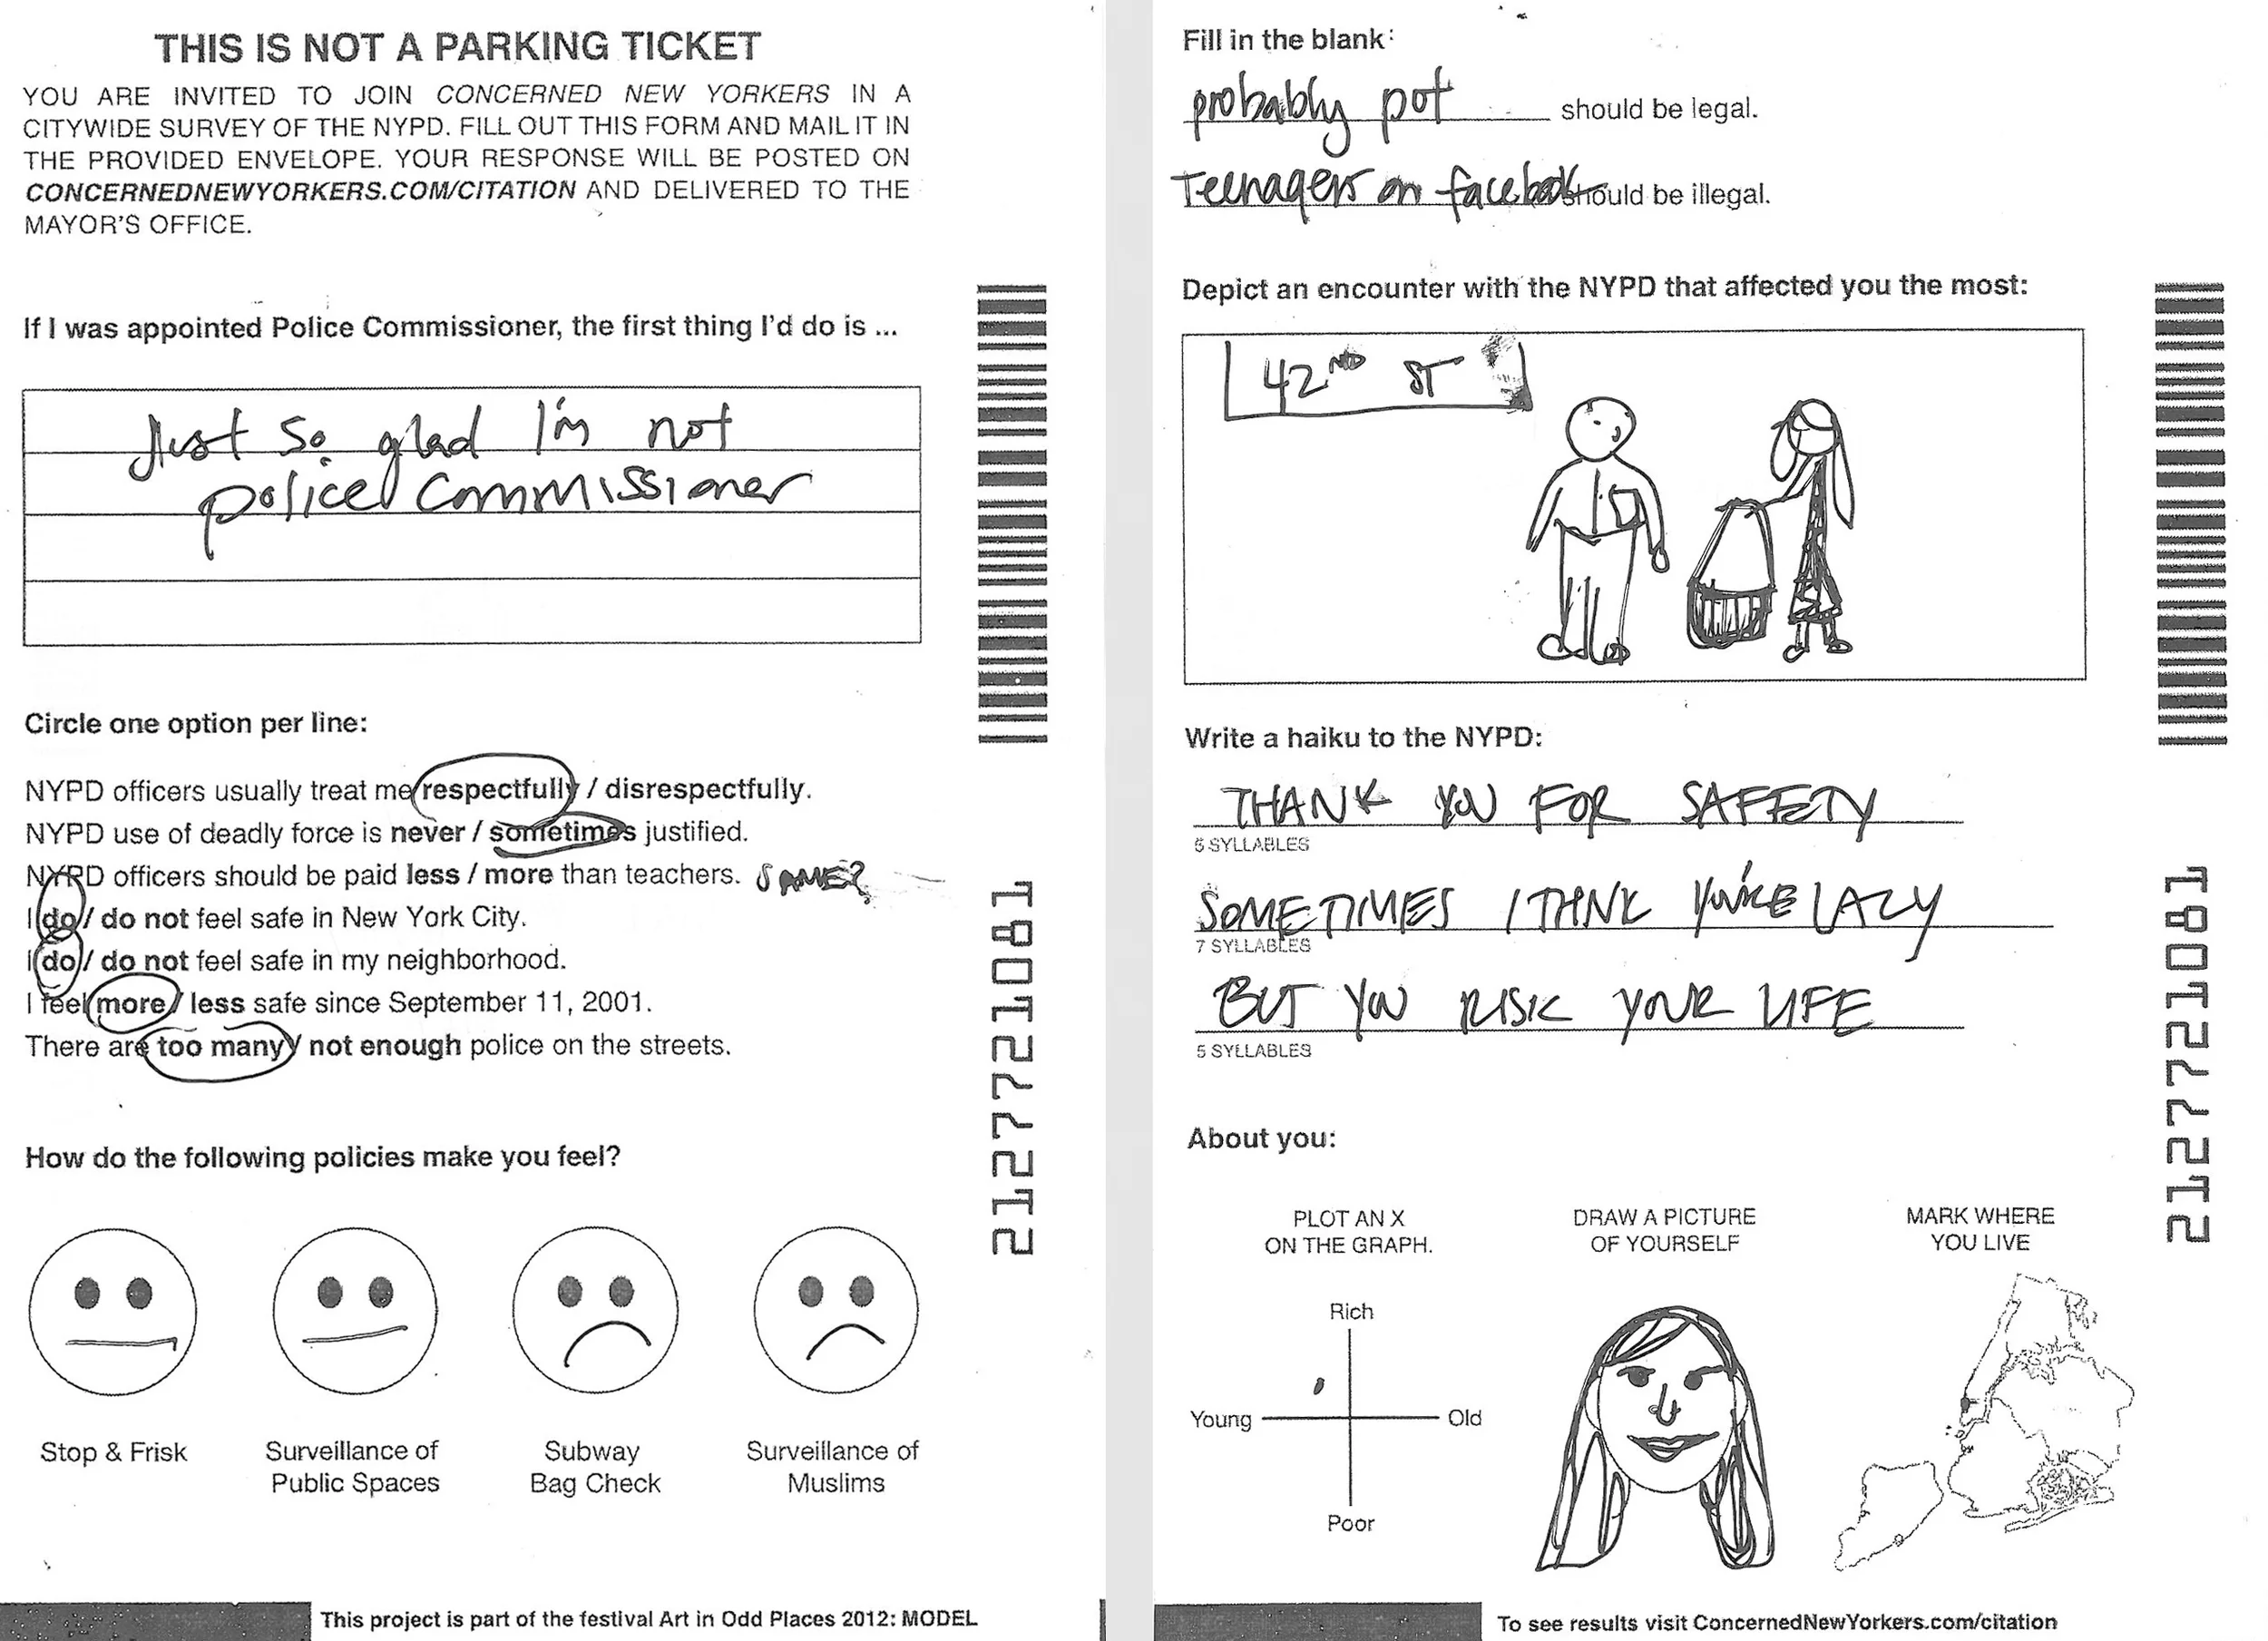 THIS IS NOT A PARKING TICKET
YOU ARE INVITED TO JOIN CONCERNED NEW YORKERS IN A
CITYWIDE SURVEY OF THE NYPD. FILL OUT THIS FORM AND MAIL IT IN
THE PROVIDED ENVELOPE. YOUR RESPONSE WILL BE POSTED ON
CONCERNEDNEWYORKERS.COM/CITATION AND DELIVERED TO THE
MAYOR'S OFFICE.
If I was appointed Police Commissioner, the first thing I'd do is ...
Just so glad I'm not
police commissioner
Circle one option per line:
NYPD officers usually treat me respectfully / disrespectfully.
NYPD use of deadly force is never / sometimes justified.
NYPD officers should be paid less / more than teachers. SAME?
I do / do not feel safe in New York City.
I do / do not feel safe in my neighborhood.
I feel more / less safe since September 11, 2001.
There are too many / not enough police on the streets.
How do the following policies make you feel?
Stop & Frisk
Surveillance of
Public Spaces
Subway
Bag Check
Surveillance of
Muslims
This project is part of the festival Art in Odd Places 2012: MODEL
212721081
Fill in the blank:
probably pot should be legal.
Teenagers on facebook should be illegal.
Depict an encounter with the NYPD that affected you the most:
42ND ST
Write a haiku to the NYPD:
THANK YOU FOR SAFFETY
5 SYLLABLES
SOMETIMES I THNK YOU'RE LAZY
7 SYLLABLES
BUT YOU RISK YOUR LIFE
5 SYLLABLES
About you:
PLOT AN X
ON THE GRAPH.
Rich
Young
Old
Poor
DRAW A PICTURE
OF YOURSELF
MARK WHERE
YOU LIVE
To see results visit ConcernedNewYorkers.com/citation